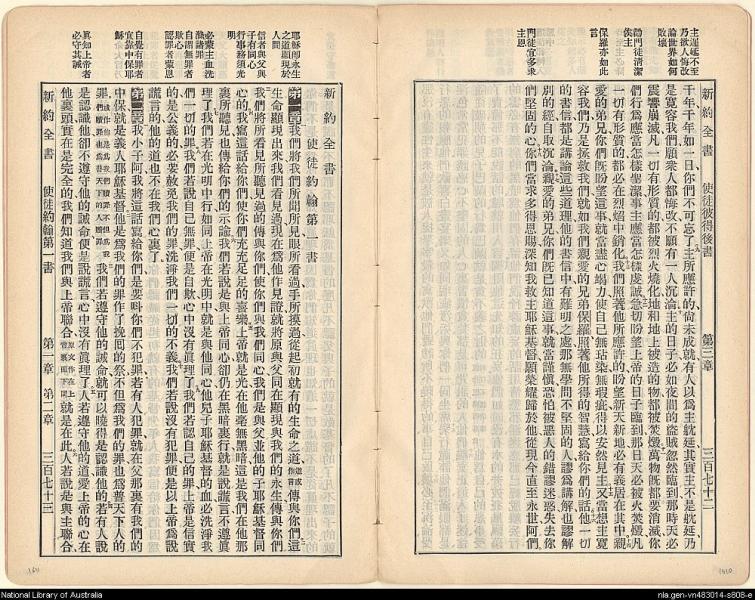 新約全書 使徒彼得後書 第三章 三百七十二
主遲延不至
乃欲人悔改
論世界如何
敗壞
勸門徒清潔
俟主
保羅亦如此
言
門徒宜多求
主恩
千年千年如一日你們不可忘了主所應許的尙未成就有人以爲主躭延其實主不是躭延乃
是寬容我們願衆人都悔改不願有一人沉淪主的日子必如夜間的盜賊忽然臨到那時天必
震響崩滅凡一切有形質的都被烈火燒化地和地上被造的物都被焚燬萬物旣都要消滅你
們行爲應當怎樣聖潔事主應當怎樣虔誠急切盼望上帝的日子臨到那日天必被火焚燬凡
一切有形質的都必在烈焰中銷化我們照著他所應許的盼望新天新地必有義居在其中親
愛的弟兄你們旣盼望這事就當盡心竭力使自己無玷染無瑕疵得以安然見主又當想主寬
容我們乃是拯救我們就如我們親愛的兄弟保羅照著他所得的智慧寫給你們的話他一切
的書信都是講論這些道理他的書信中有難明之處那無學問不堅固的人謬爲講解也謬解
別的經自取沉淪親愛的弟兄你們旣已知道這事就當謹愼恐怕被惡人的錯謬迷惑失去你
們堅固的心你們當求多得恩賜深知我救主耶穌基督願榮耀歸於他從現今直至永世阿們
新約全書
使徒約翰第一書
耶穌卽永生
之道顯現於
世
信者與父與
子有同心
行事務須光
明
必蒙主血洗
滌諸罪
自謂無罪者
欺心
認罪者蒙恩
自覺有罪者
宜靠中保耶
穌
眞知上帝者
必守其誡
第一章我們將我們所聞所見眼所看過手所摸過從起初就有的生命之道傳與你們這
生命顯現出來我們看見過現在爲他作見證就將原與父同在顯現與我們的永生傳與你們
我們將所看見所聽見過的傳與你們使你們與我們同心我們是與父並他的子耶穌基督同
心的我寫這話給你們使你們充充足足的喜樂上帝就是光在他毫無黑暗這是我們在他那
裏所聽見也傳給你們的示諭我們若說是與上帝同心卻仍在黑暗裏行就是說謊言不遵眞
理了我們若在光明中行如同上帝在光明中就是與他同心他兒子耶穌基督的血必洗淨我
們一切的罪我們若說自己無罪便是自欺心中沒有眞理了我們若認自己的罪上帝是信實
的是公義的必要赦免我們的罪洗淨我們一切的不義我們若說沒有犯罪便是以上帝爲說
謊言的他的道也不在我們心裏了
第二章我小子阿我將這話寫給你們是要呌你們不犯罪若有人犯罪就在父那裏有我們的
中保就是義人耶穌基督他是爲我們的罪作了挽囘的祭不但爲我們的罪也爲普天下人的
罪我們若遵守他的誡命就可以曉得是認識他的若有人說
是認識他卻不遵守他的誡命便是說謊言心中沒有眞理了人若遵守他的道愛上帝的心在
他裏頭實在是完全的我們知道我們與上帝聯合就是在此人若說是與主聯合
新約全書 使徒約翰第一書 第一章 第二章 三百七十三
National Library of Australia
nla.gen-vn483014-s808-e